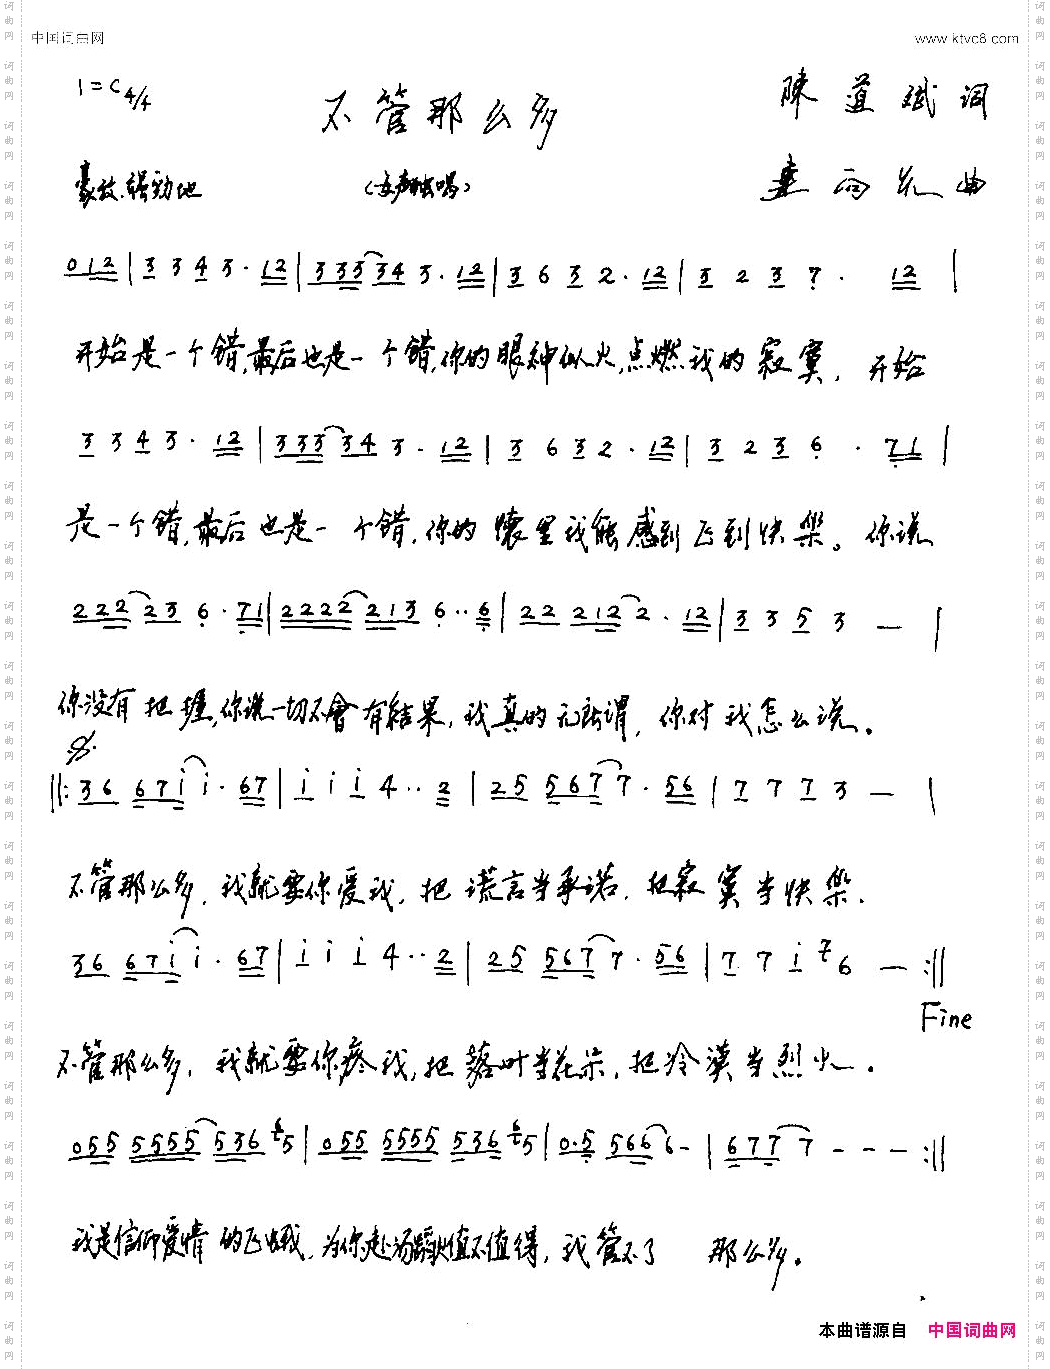 中国词曲网 www.ktvc8.com
1=C 4/4
不管那么多
陳道斌词
豪放.强劲地 (女声独唱) 雨 曲
0 1 2 | 3 3 4 3 · 1 2 | 3 3 3 3 4 3 · 1 2 | 3 6 3 2 · 1 2 | 3 2 3 7 · 1 2 |
开始是一个错,最后也是一个错,你的眼神似火,点燃我的寂寞, 开始
3 3 4 3 · 1 2 | 3 3 3 3 4 3 · 1 2 | 3 6 3 2 · 1 2 | 3 2 3 6 · 7 1 |
是一个错,最后也是一个错,你的懷里我能感到飞到快樂。你说
2 2 2 2 3 6 · 7 1 | 2 2 2 2 2 1 3 6 · · 6 | 2 2 2 1 2 2 · 1 2 | 3 3 5 3 — |
你没有把握,你说一切不會有结果,我真的无所谓,你对我怎么说。
‖: 3 6 6 7 i i · 6 7 | i i i 4 · · 2 | 2 5 5 6 7 7 · 5 6 | 7 7 7 3 — |
不管那么多,我就要你爱我,把谎言当承诺,把寂寞当快樂.
3 6 6 7 i i · 6 7 | i i i 4 · · 2 | 2 5 5 6 7 7 · 5 6 | 7 7 i 7 6 — :‖
Fine
不管那么多,我就要你疼我,把落叶当花朵,把冷漠当烈火.
0 5 5 5 5 5 5 5 3 6 6 5 | 0 5 5 5 5 5 5 5 3 6 6 5 | 0 · 5 5 6 6 6 - | 6 7 7 7 - - - :‖
我是信仰爱情的飞蛾,为你赴汤蹈火值不值得,我管不了 那么多。
本曲谱源自 中国词曲网